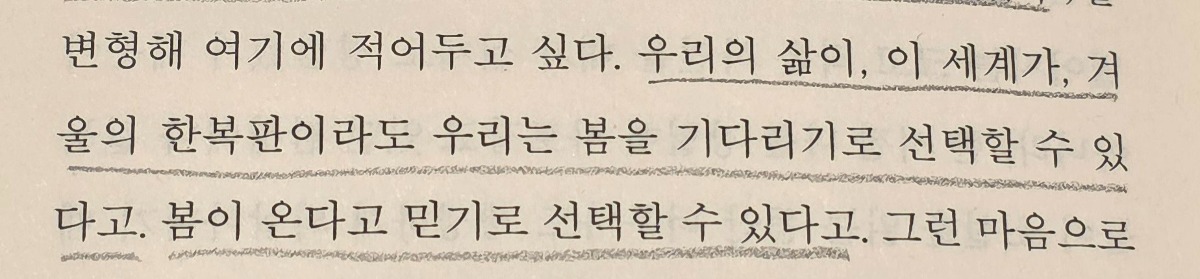 변형해 여기에 적어두고 싶다. 우리의 삶이, 이 세계가, 겨
울의 한복판이라도 우리는 봄을 기다리기로 선택할 수 있
다고. 봄이 온다고 믿기로 선택할 수 있다고. 그런 마음으로